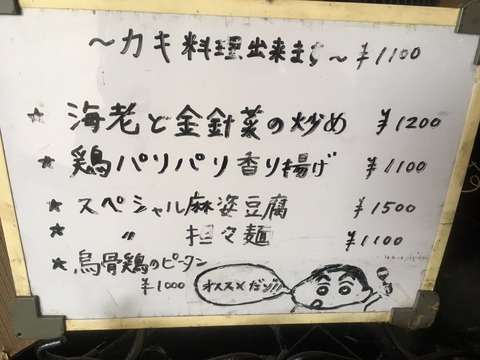 ～カキ料理出来ます～ ¥1100
★ 海老と金針菜の炒め ¥1200
★ 鶏パリパリ香り揚げ ¥1100
★ スペシャル麻婆豆腐 ¥1500
★ 〃 担々麺 ¥1100
★ 烏骨鶏のピータン
¥1000
オススメだゾ!!